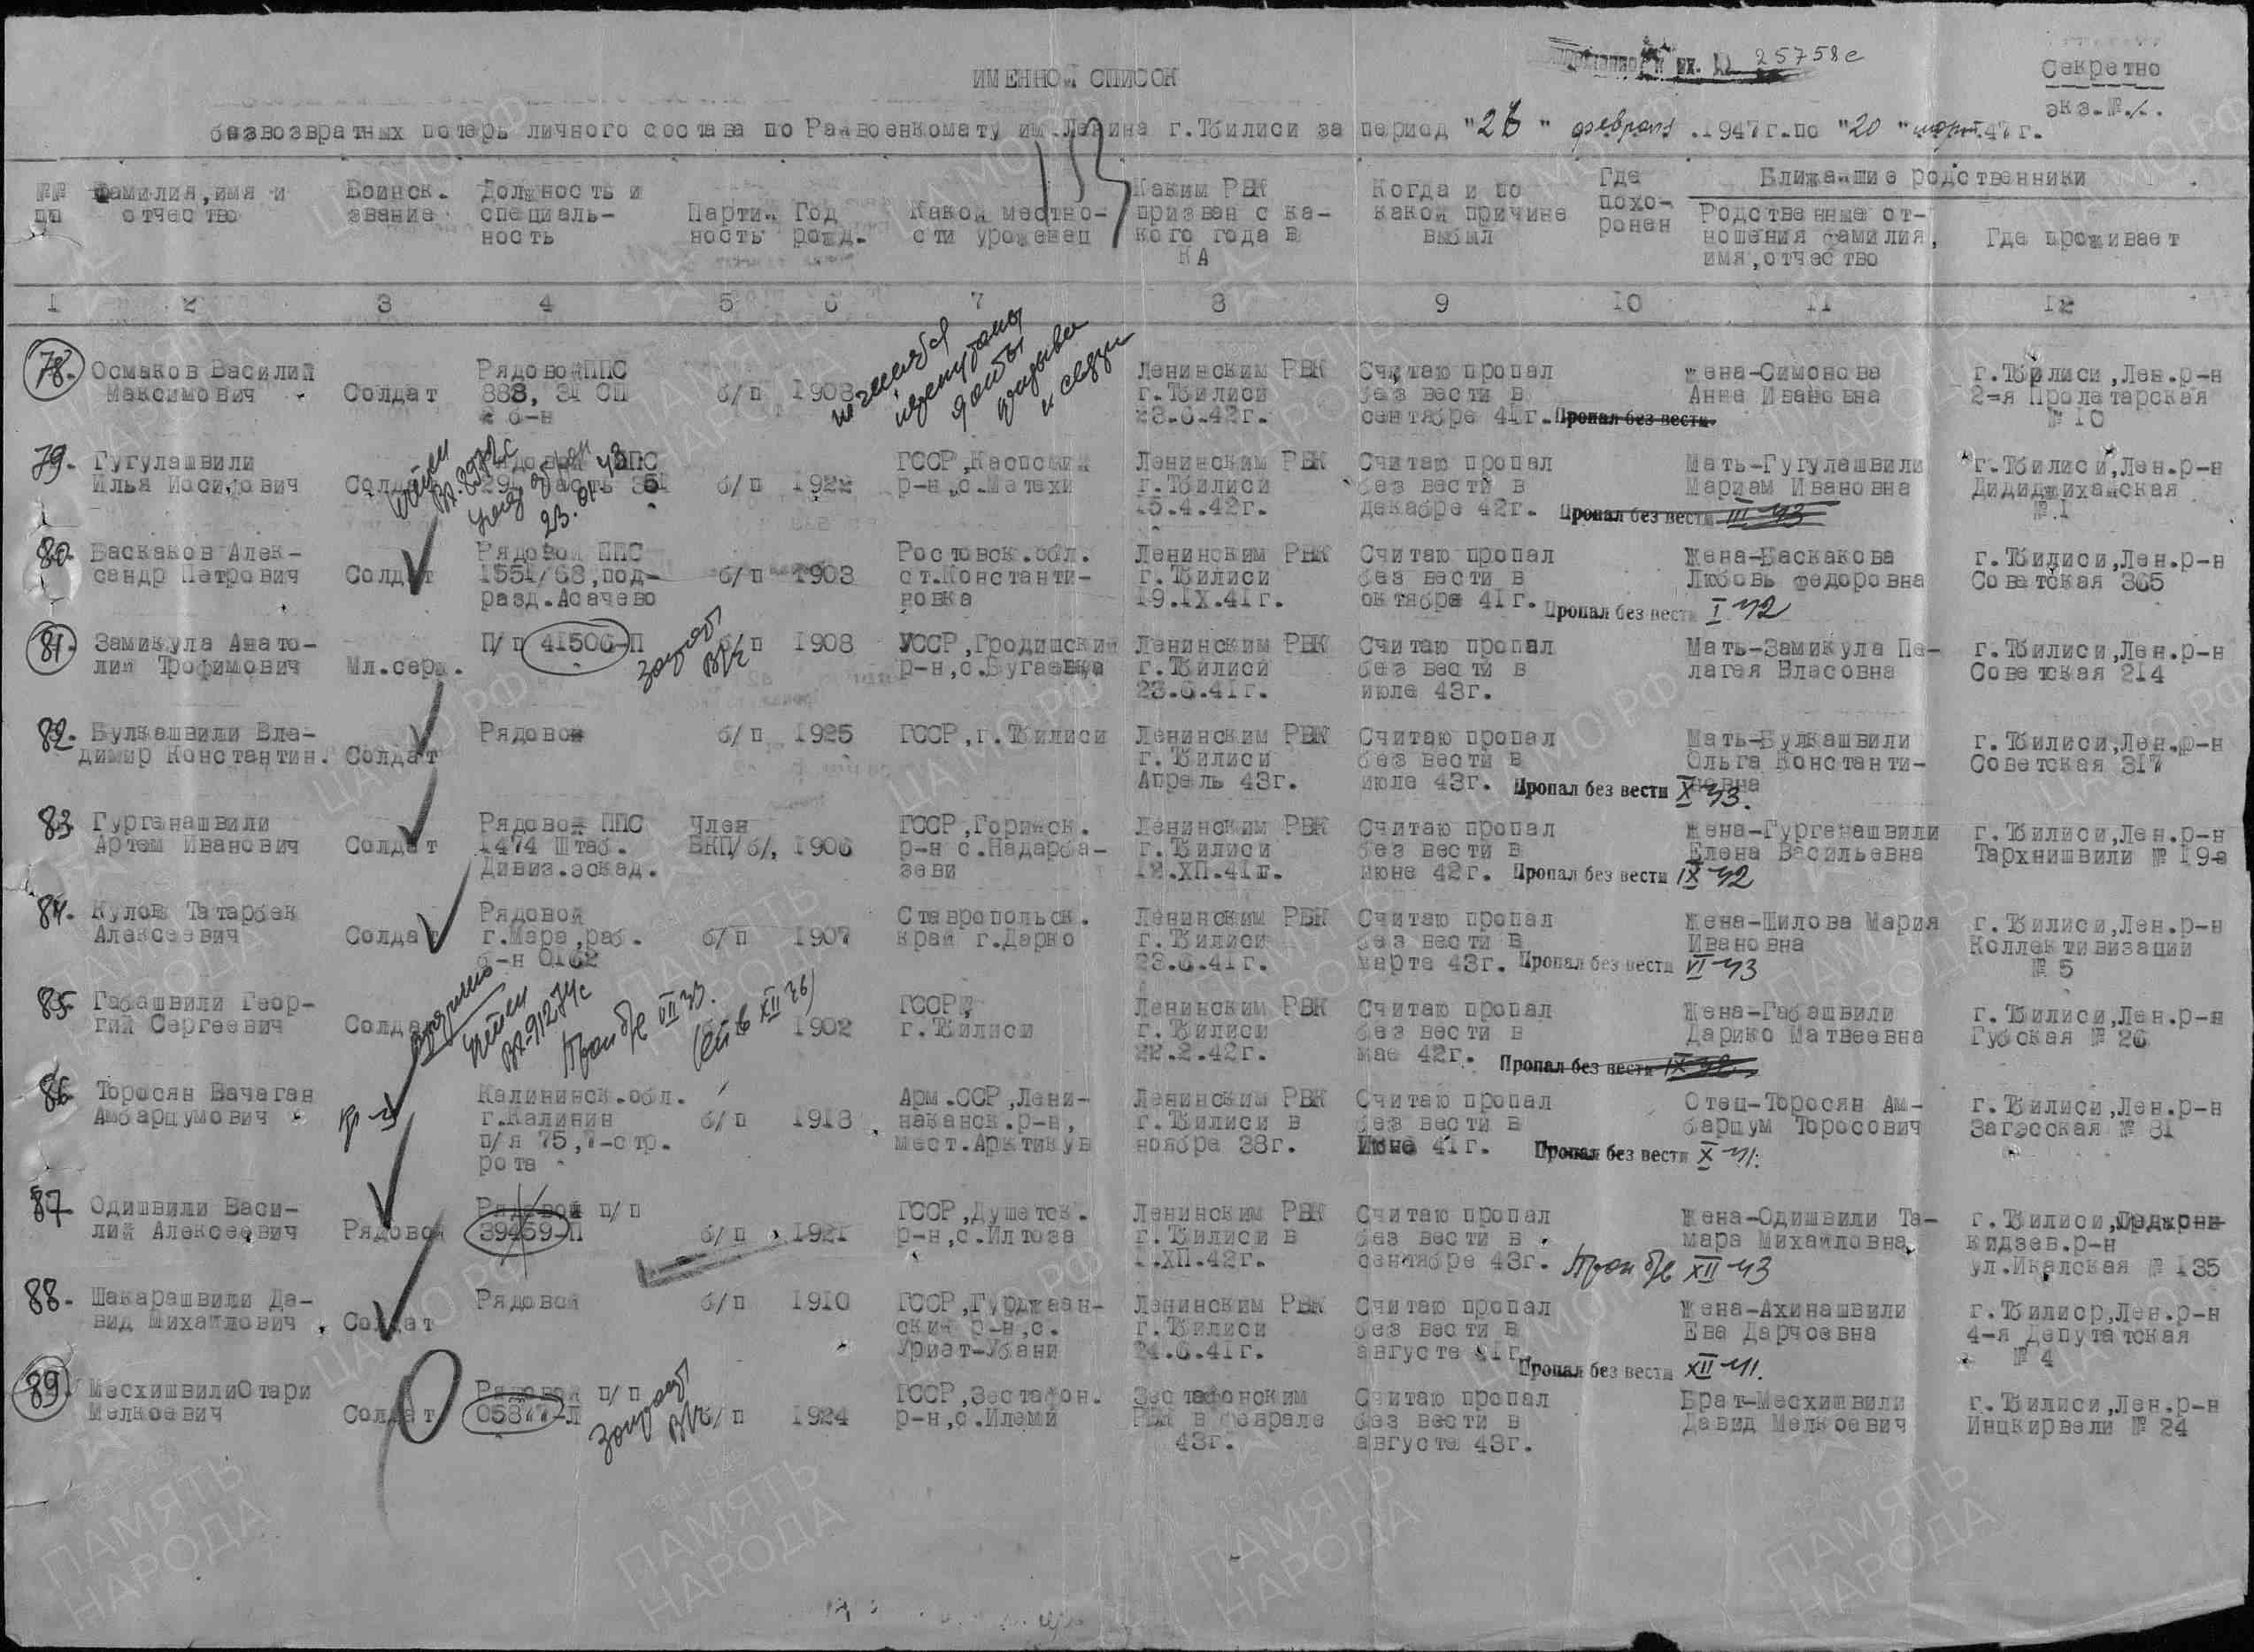 25758с
Секретно
экз.№1.
ИМЕННОЙ СПИСОК
безвозвратных потерь личного состава по Райвоенкомату им.Ленина г.Тбилиси за период "26" февраля .1947г.по "20" март.47г.
№№ пп
Фамилия,имя и отчество
Воинск. звание
Должность и специаль- ность
Партий ность
Год рожд.
Какой местно- сти урожонец
Каким РВК призван с ка- кого года в КА
Когда и по какой причине выбыл
Где похо- ронен
Ближайшие родственники
Родственные от- ношения фамилия, имя,отчество
Где проживает
1 2 3 4 5 6 7 8 9 10 11 12
78. Осмаков Василий Рядовой ППС Ленинским РВК Считаю пропал жена-Симонова г.Тбилиси,Лен.р-н
Максимович Солдат 888, 31 СП б/п 1908 г.Тбилиси без вести в Анна Ивановна 2-я Пролетарская
2 б-н 23.6.42г. сентябре 41г. Пропал без вести. № 10
79. Гугулашвили Рядовой ППС ГССР,Каспский Ленинским РВК Считаю пропал Мать-Гугулашвили г.Тбилиси,Лен.р-н
Илья Иосифович Солдат 291 часть б/п 1922 р-н,с.Метехи г.Тбилиси без вести в Мариам Ивановна Дидиджихаиская
23.01.43 15.4.42г. декабре 42г. Пропал без вести III 43 № 1
80. Баскаков Алек- Рядовой ППС Ростовск.обл. Ленинским РВК Считаю пропал Жена-Баскакова г.Тбилиси,Лен.р-н
сандр Петрович Солдат 1551/68,под- б/п 1903 ст.Константи- г.Тбилиси без вести в Любовь Федоровна Советская 365
разд.Асачево новка 19.IX.41г. октябре 41г. Пропал без вести I 42
81. Замикула Анато- П/п 41506-П б/п 1908 УССР,Гродишский Ленинским РВК Считаю пропал Мать-Замикула Пе- г.Тбилиси,Лен.р-н
лий Трофимович Мл.серж. р-н,с.Бугаевка г.Тбилиси без вести в лагея Власовна Советская 214
23.6.41г. июле 43г.
82. Булкашвили Вла- Рядовой б/п 1925 ГССР,г.Тбилиси Ленинским РВК Считаю пропал Мать-Булкашвили г.Тбилиси,Лен.р-н
димир Константин. Солдат г.Тбилиси без вести в Ольга Константи- Советская 317
Апрель 43г. июле 43г. Пропал без вести X 43. новна
83 Гургенашвили Рядовой ППС Член ГССР,Горийск. Ленинским РВК Считаю пропал Жена-Гургенашвили г.Тбилиси,Лен.р-н
Артем Иванович Солдат 1474 Штаб. ВКП/б/, 1906 р-н с.Надарба- г.Тбилиси без вести в Елена Васильевна Тархнишвили № 19а
Дивиз.эскад. зеви 12.ХП.41г. июне 42г. Пропал без вести IX 42
84. Кулов Татарбек Рядовой Ставропольск. Ленинским РВК Считаю пропал Жена-Шилова Мария г.Тбилиси,Лен.р-н
Алексеевич Солдат г.Мара,раб. б/п 1907 край г.Дарко г.Тбилиси без вести в Ивановна Коллективизации
б-н 0162 23.6.41г. марте 43г. Пропал без вести VI 43 № 5
85. Габашвили Геор- ГССР, Ленинским РВК Считаю пропал Жена-Габашвили г.Тбилиси,Лен.р-н
гий Сергеевич Солдат 1902 г.Тбилиси г.Тбилиси без вести в Дарико Матвеевна Губская № 26
22.2.42г. мае 42г. Пропал без вести IX 42
86 Торосян Вачаган Калининск.обл. Арм.ССР,Лени- Ленинским РВК Считаю пропал Отец-Торосян Ам- г.Тбилиси,Лен.р-н
Амбарцумович кр-ц г.Калинин б/п 1918 наканск.р-н, г.Тбилиси в без вести в барцум Торосович Загэсская № 81
п/я 75,7-стр. мест.Арктикув ноября 38г. Июне 41г. Пропал без вести X 41.
рота
87. Одишвили Васи- Рядовой п/п ГССР,Душетск. Ленинским РВК Считаю пропал Жена-Одишвили Та- г.Тбилиси,Орджони
лий Алексеевич Рядовой 39459-П б/п 1921 р-н,с.Илтоза г.Тбилиси в без вести в мара Михайловна кидзев.р-н
1.ХП.42г. сентябре 43г. Проп б/в XII 43 ул.Икалская № 135
88. Шакарашвили Да- Рядовой б/п 1910 ГССР,Гурджаан- Ленинским РВК Считаю пропал Жена-Ахинашвили г.Тбилиср,Лен.р-н
вид Михайлович Солдат ский р-н,с. г.Тбилиси без вести в Ева Дарчоевна 4-я Депутатская
Уриат-Убани 24.6.41г. августе 41г. Пропал без вести XII 41. № 4
89. Месхишвили Отари Рядовой п/п ГССР,Зестафон. Зестафонским Считаю пропал Брат-Месхишвили г.Тбилиси,Лен.р-н
Мелкоевич Солдат 05877-Л б/п 1924 р-н,с.Илеми РВК в феврале без вести в Давид Мелкоевич Инцкирвели № 24
43г. августе 43г.
ПАМЯТЬ НАРОДА
ЦАМО.РФ